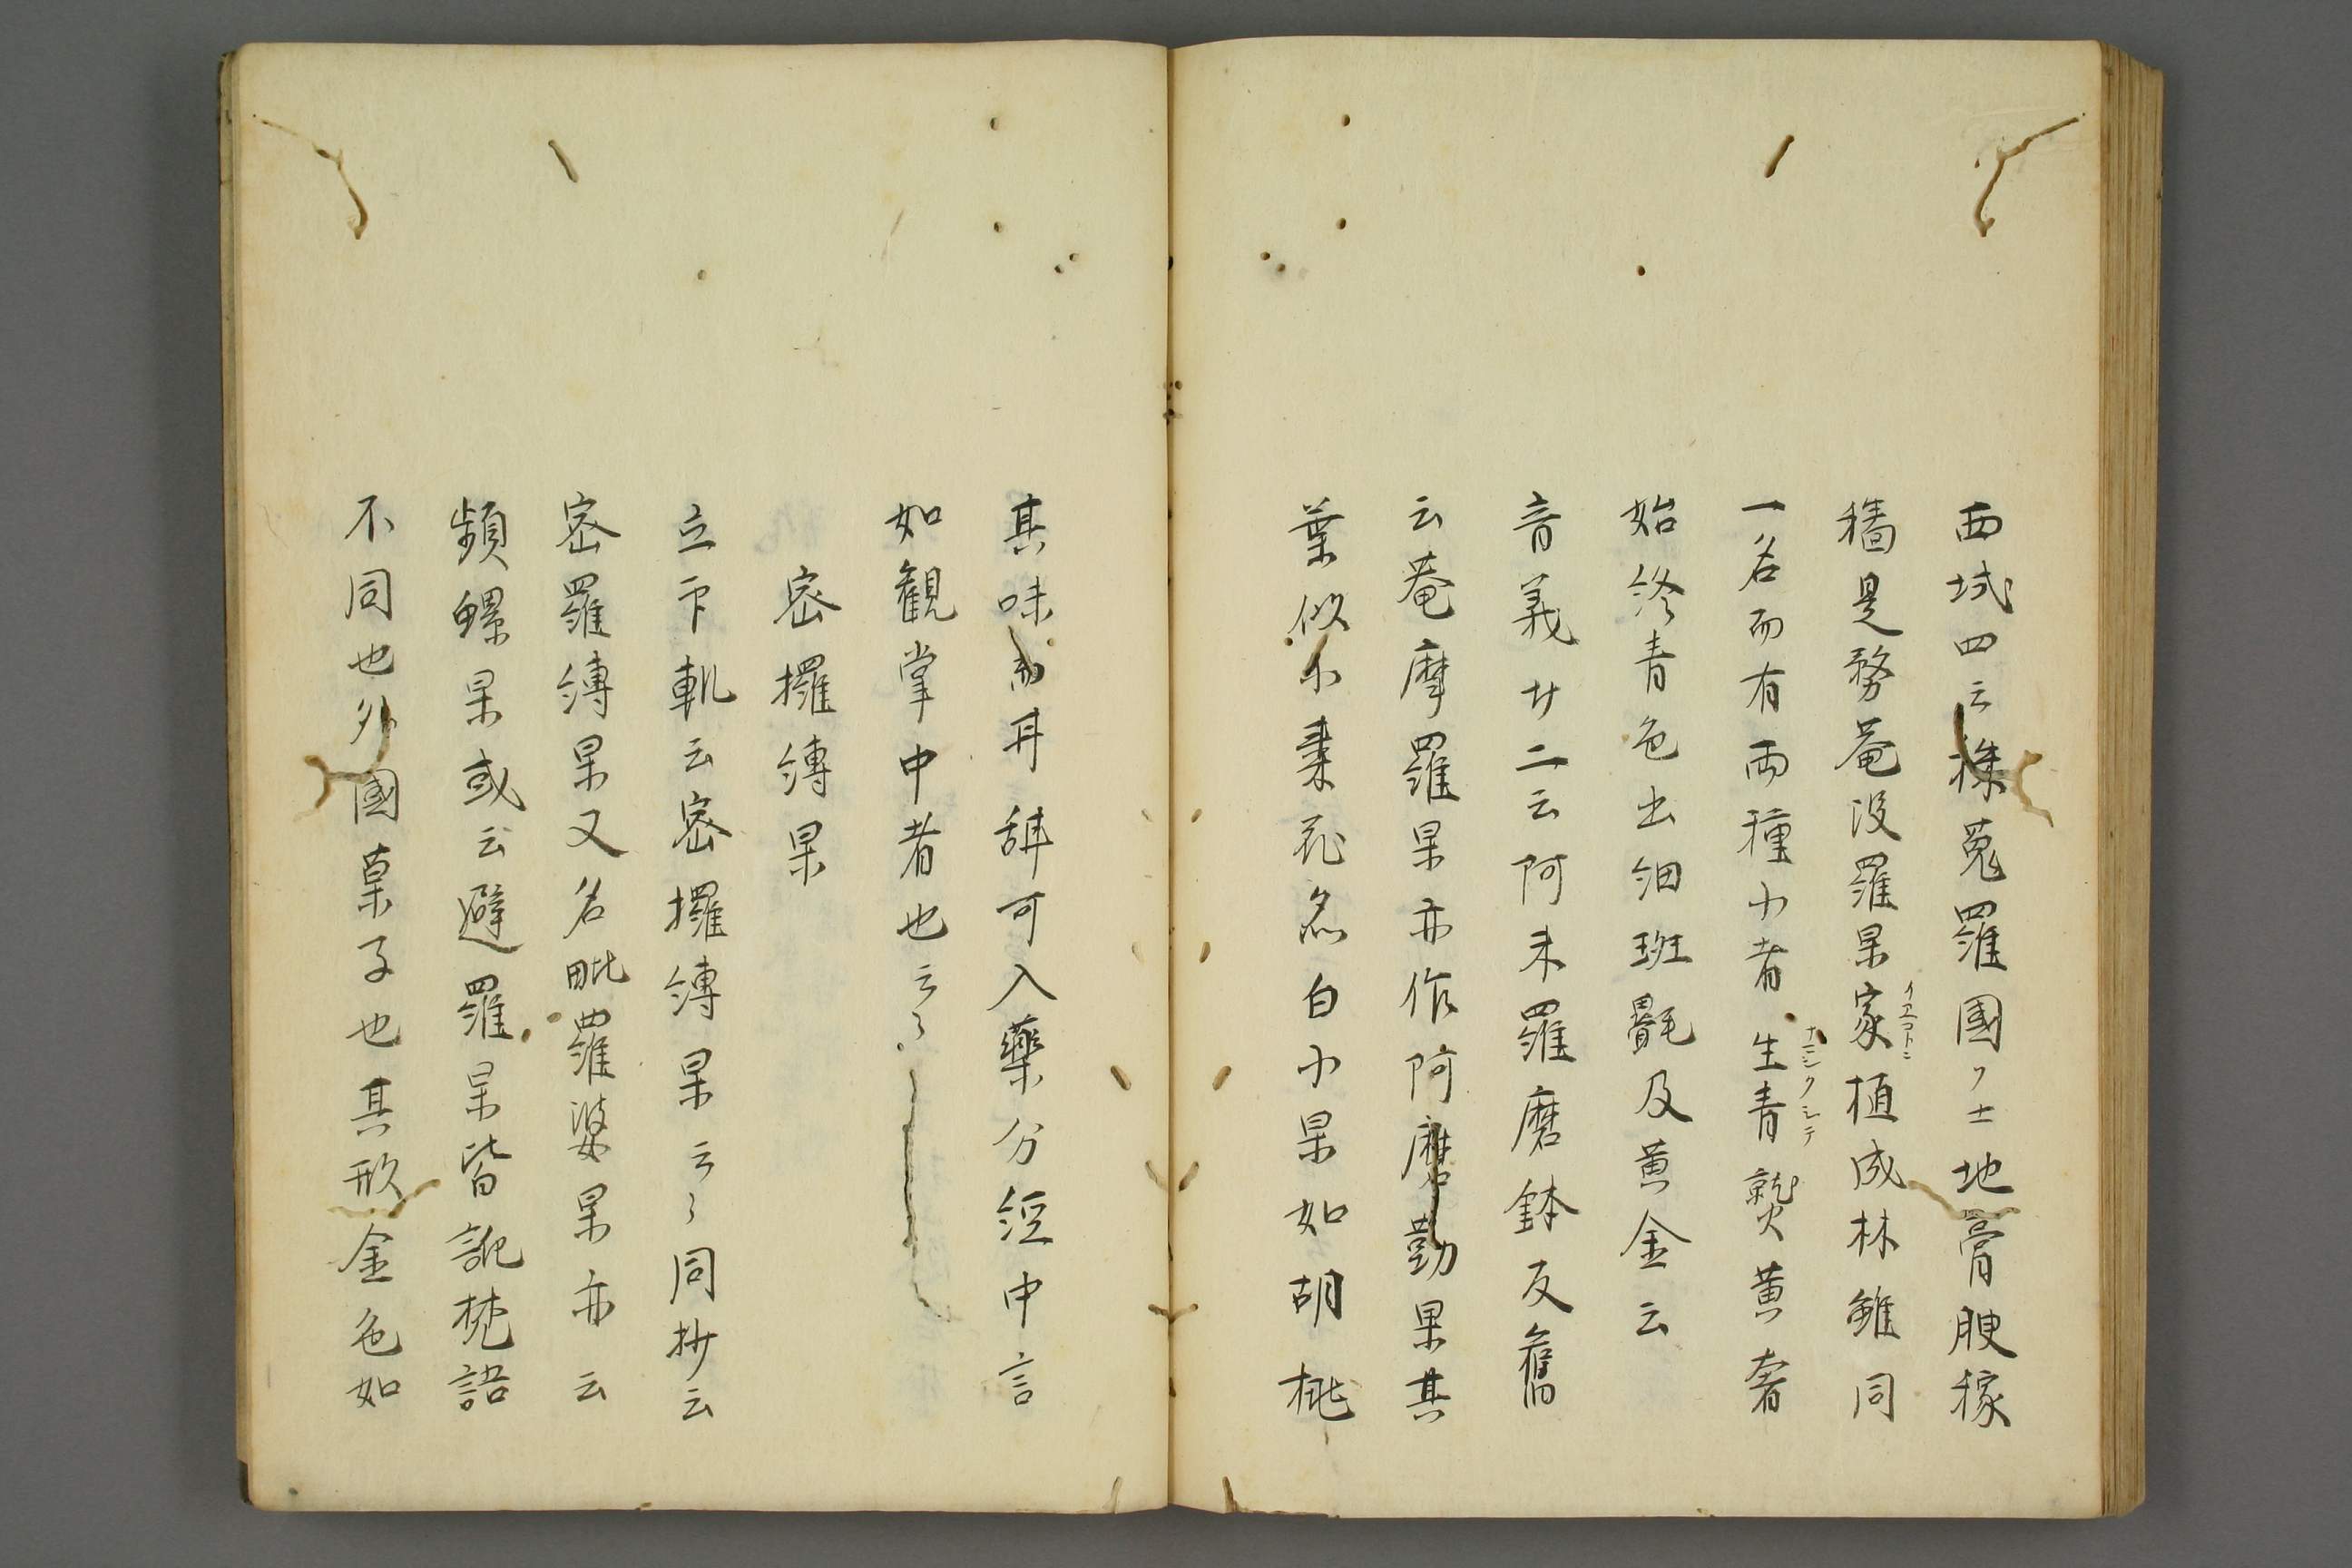 西域四云秣菟羅國ノ土地膏腴稼
穡是務菴没羅果家植成林雖同
イエコトニ
一名而有兩種小者生青熟黄奢
ナマシクシテ
始終青色出細班氎及黄金云
音義廿二云阿末羅磨鉢反舊
云菴摩羅果亦作阿磨勒果其
葉似小棗花亦白小果如胡桃
其味而耳辞可入藥分經中言
如観掌中者也云々
密攞嚩果
立印軌云密攞嚩果云々同抄云
密羅嚩果又名毗羅婆果亦云
頻螺果或云避羅果皆訛梵語
不同也外國菓子也其形金色如